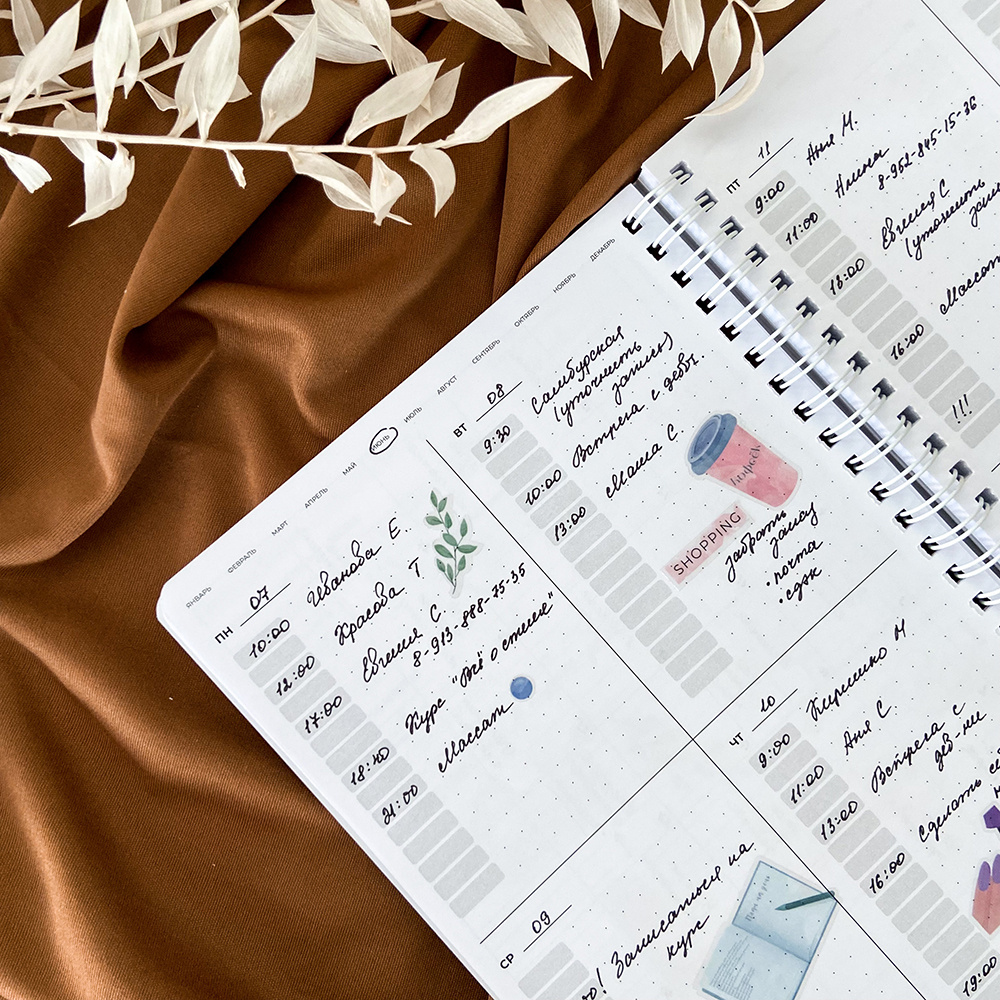 ЯНВАРЬ ФЕВРАЛЬ МАРТ АПРЕЛЬ МАЙ ИЮНЬ ИЮЛЬ АВГУСТ СЕНТЯБРЬ ОКТЯБРЬ НОЯБРЬ ДЕКАБРЬ
ПН 07
10:00 Иванова Е.
12:00 Красова Т
17:00 Евгения С.
8-913-888-75-35
18:40 Курс "Всё о стиле"
21:00 Массаж
ВТ 08
9:30 Самбурская
(уточнить
запись)
10:00 Встреча с девч.
13:00 Маша С.
SHOPPING
забрать
заказ
•почта
•сдэк
СР 09
! Записаться на
курс
ЧТ 10
9:00 Кириенко М
11:00 Аня С.
13:00 Встреча с
дев-ми
16:00 Сделать
19:00
ПТ 11
9:00 Аня М.
11:00 Алина
8-952-845-15-36
13:00 Евгения С
(уточнить
16:00 Массаж
!!!